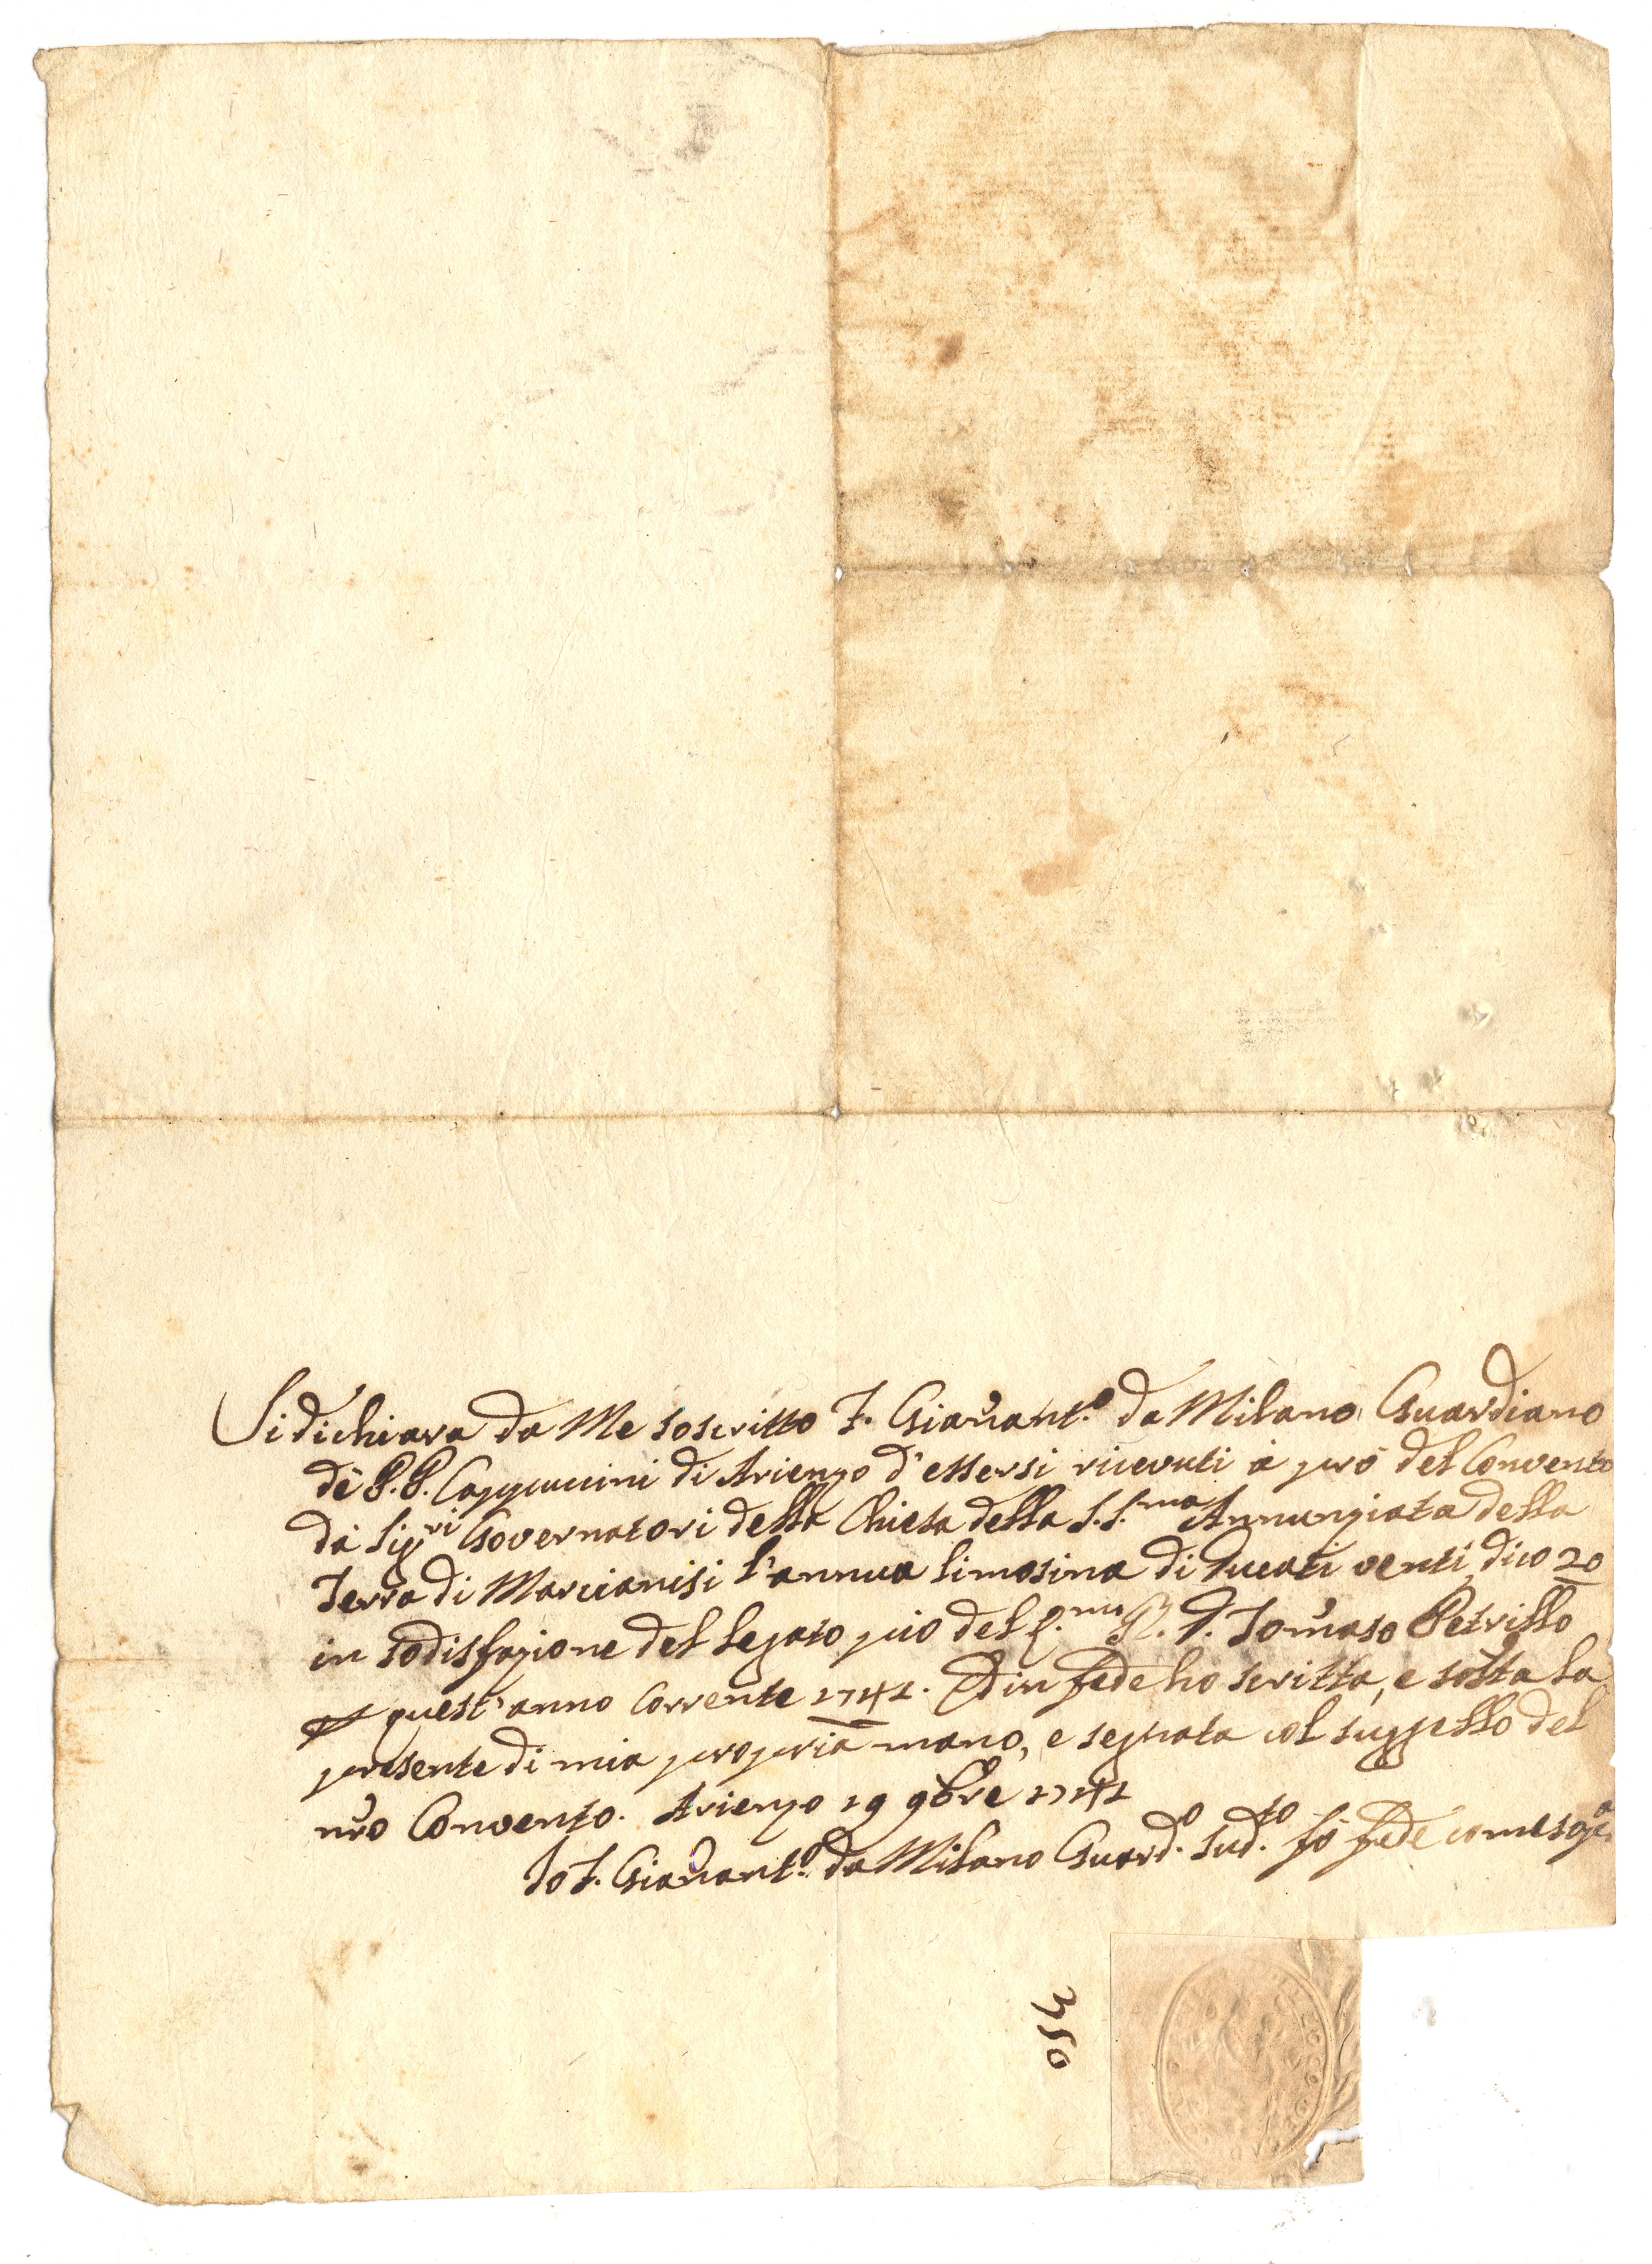 Si dichiara da Me soscritto F. Giavant.º da Milano Guardiano
de P.P. Cappuccini di Arienzo d'essersi ricevuti à prò del Convento
da Sig.ri Governatori della Chiesa della S.S.ma Annunziata della
Terra di Marcianisi l'annua limosina di Ducati venti, dico 20
in sodisfazione del legato pio del R. D. Tomaso Petrillo
quest'anno corrente 1742. Ed in fede ho scritta, e sotta la
presente di mia propria mano, e segnata col suggello del
nro Convento. Arienzo 29 9bre 1742
Io F. Giavant.º da Milano Guard.º Sud.to fò fede come sopa
350